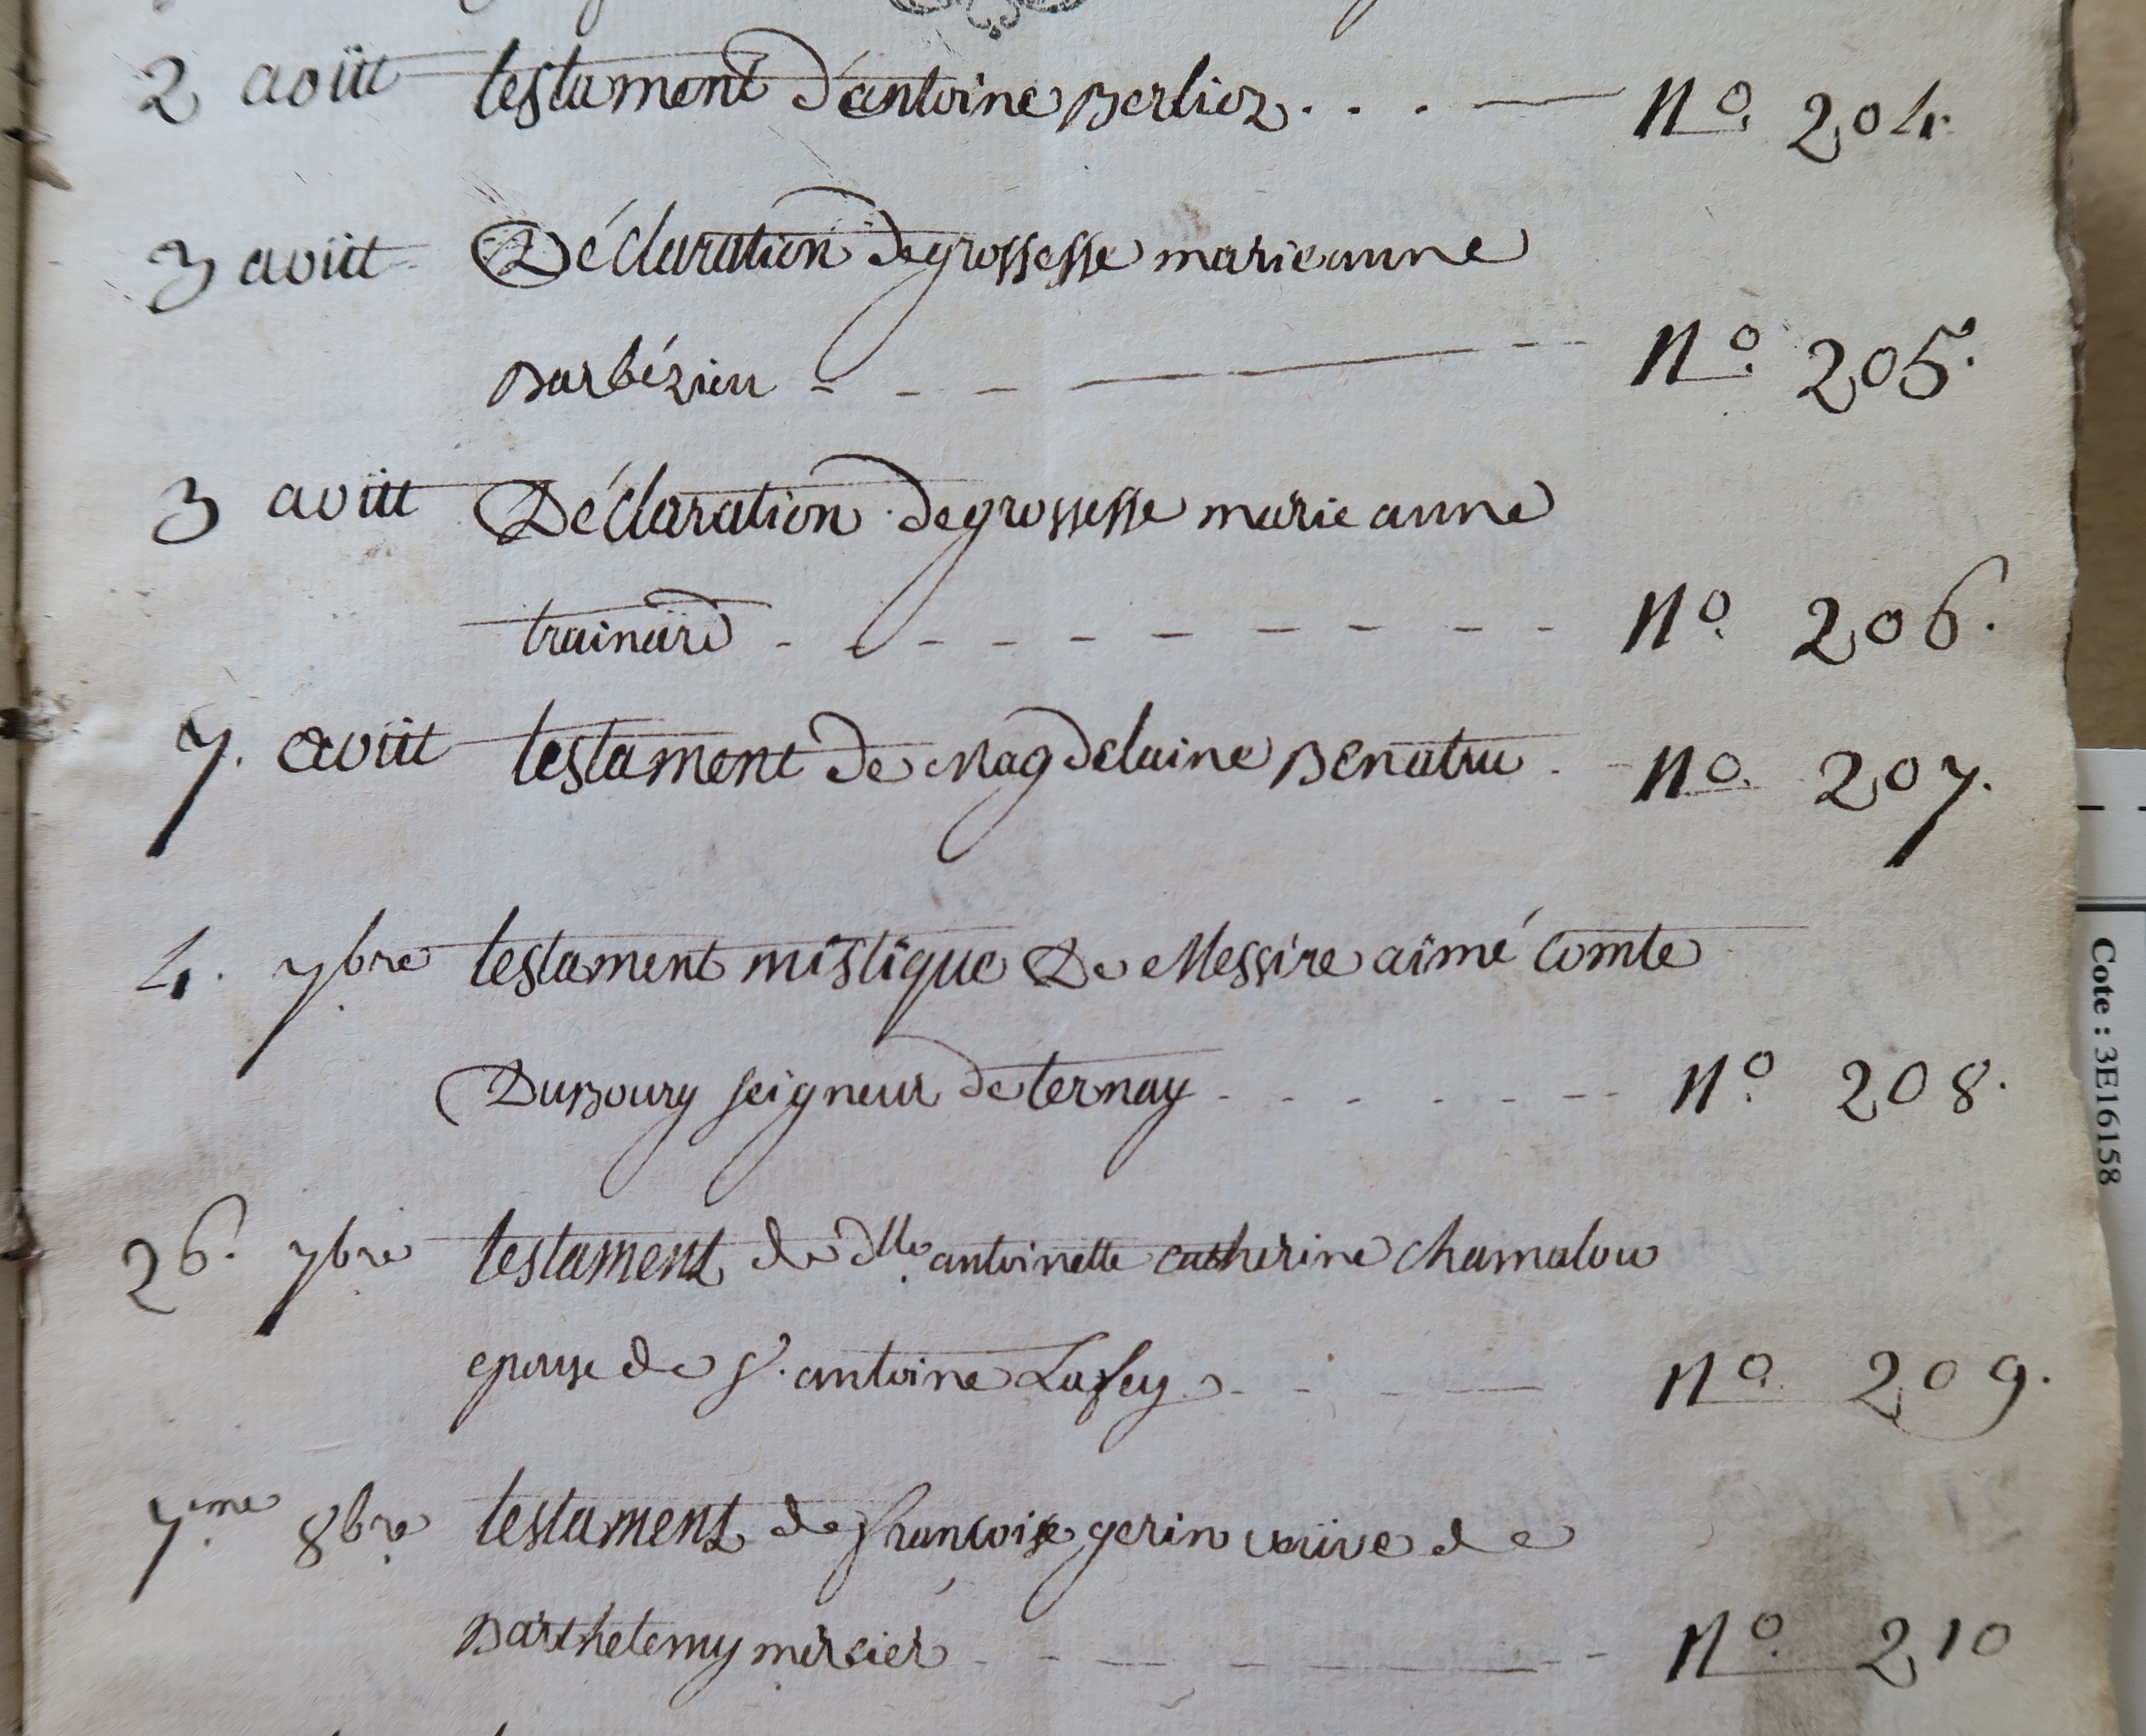 2 aoüt testament d'antoine Berlioz . . . — Nº. 204.
3 aoüt Déclaration de grossesse marie anne
Barbézieu - - - — - - Nº. 205.
3 aoüt Déclaration de grossesse marie anne
trainard - - - - - - - - - - Nº. 206.
7. aoüt testament de Magdelaine Benatru . - Nº. 207.
4. 7bre testament mistique De Messire aimé Comte
DuBourg seigneur de ternay - - - - - - Nº. 208.
26. 7bre testament de dlle. antoinette catherine Chamalou
epouse de Sr. antoine Lafay - - - — Nº. 209.
7eme 8bre testament de francoise gerin veüve de
Barthelemy mercier - - - - - — - - Nº. 210
Cote : 3E16158